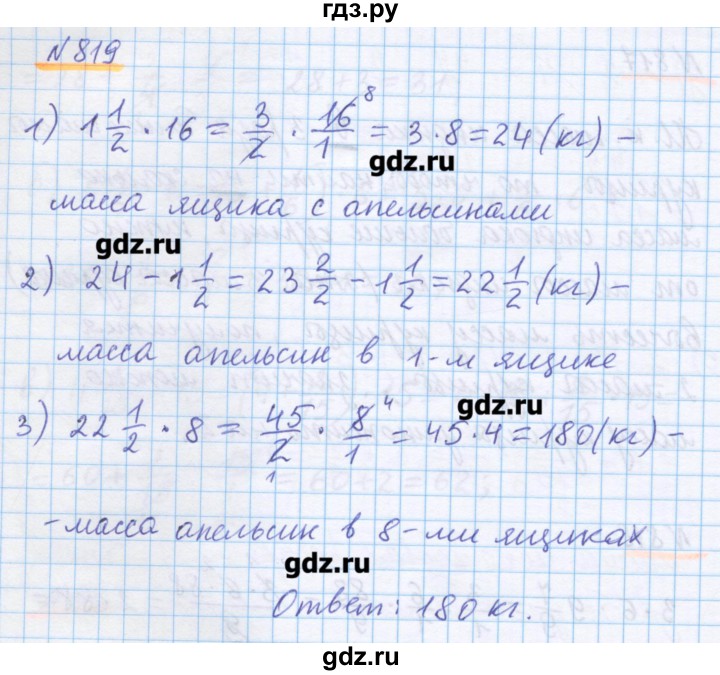 гдз.ру
№819
1) 1 1/2 · 16 = 3/2 · 16/1 8 = 3 · 8 = 24 (кг) –
gdz.ru
масса ящика с апельсинами
gdz.ru
2) 24 – 1 1/2 = 23 2/2 – 1 1/2 = 22 1/2 (кг) –
масса апельсин в 1-м ящике
gdz.ru
3) 22 1/2 · 8 = 45/2 1 · 8/1 4 = 45 · 4 = 180 (кг) –
– масса апельсин в 8-ми ящиках
gdz.ru
Ответ: 180 кг.
gdz.ru